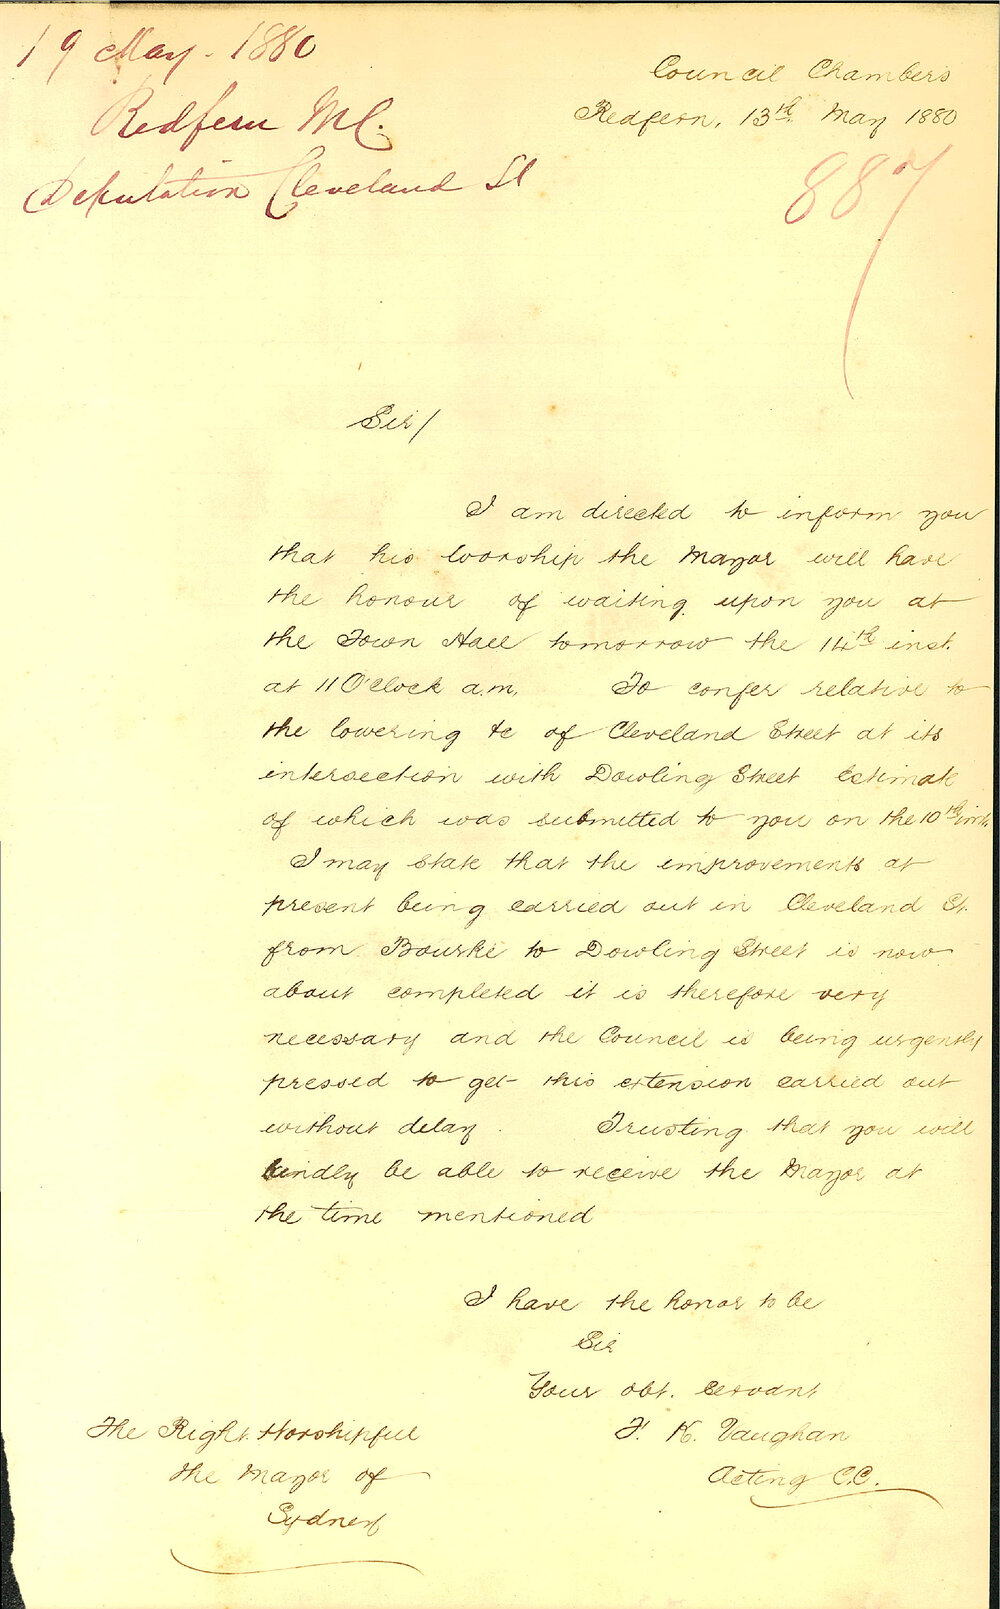 19 May. 1880
Redfern M C.
Deputation Cleveland St
Council Chambers
Redfern, 13th May 1880
887
Sir/
I am directed to inform you
that his Worship the Mayor will have
the honour of waiting upon you at
the Town Hall tomorrow the 14th inst.
at 11 O'Clock a.m. To confer relative to
the lowering &c of Cleveland Street at its
intersection with Dowling Street Estimate
of which was submitted to you on the 10th inst.
I may state that the improvements at
present being carried out in Cleveland St.
from Bourke to Dowling Street is now
about completed it is therefore very
necessary and the Council is being urgently
pressed to get this extension carried out
without delay. Trusting that you will
kindly be able to receive the Mayor at
the time mentioned
I have the honor to be
Sir
Your obt. servant
The Right Worshipful
the Mayor of
Sydney
F. K. Vaughan
Acting C.C.